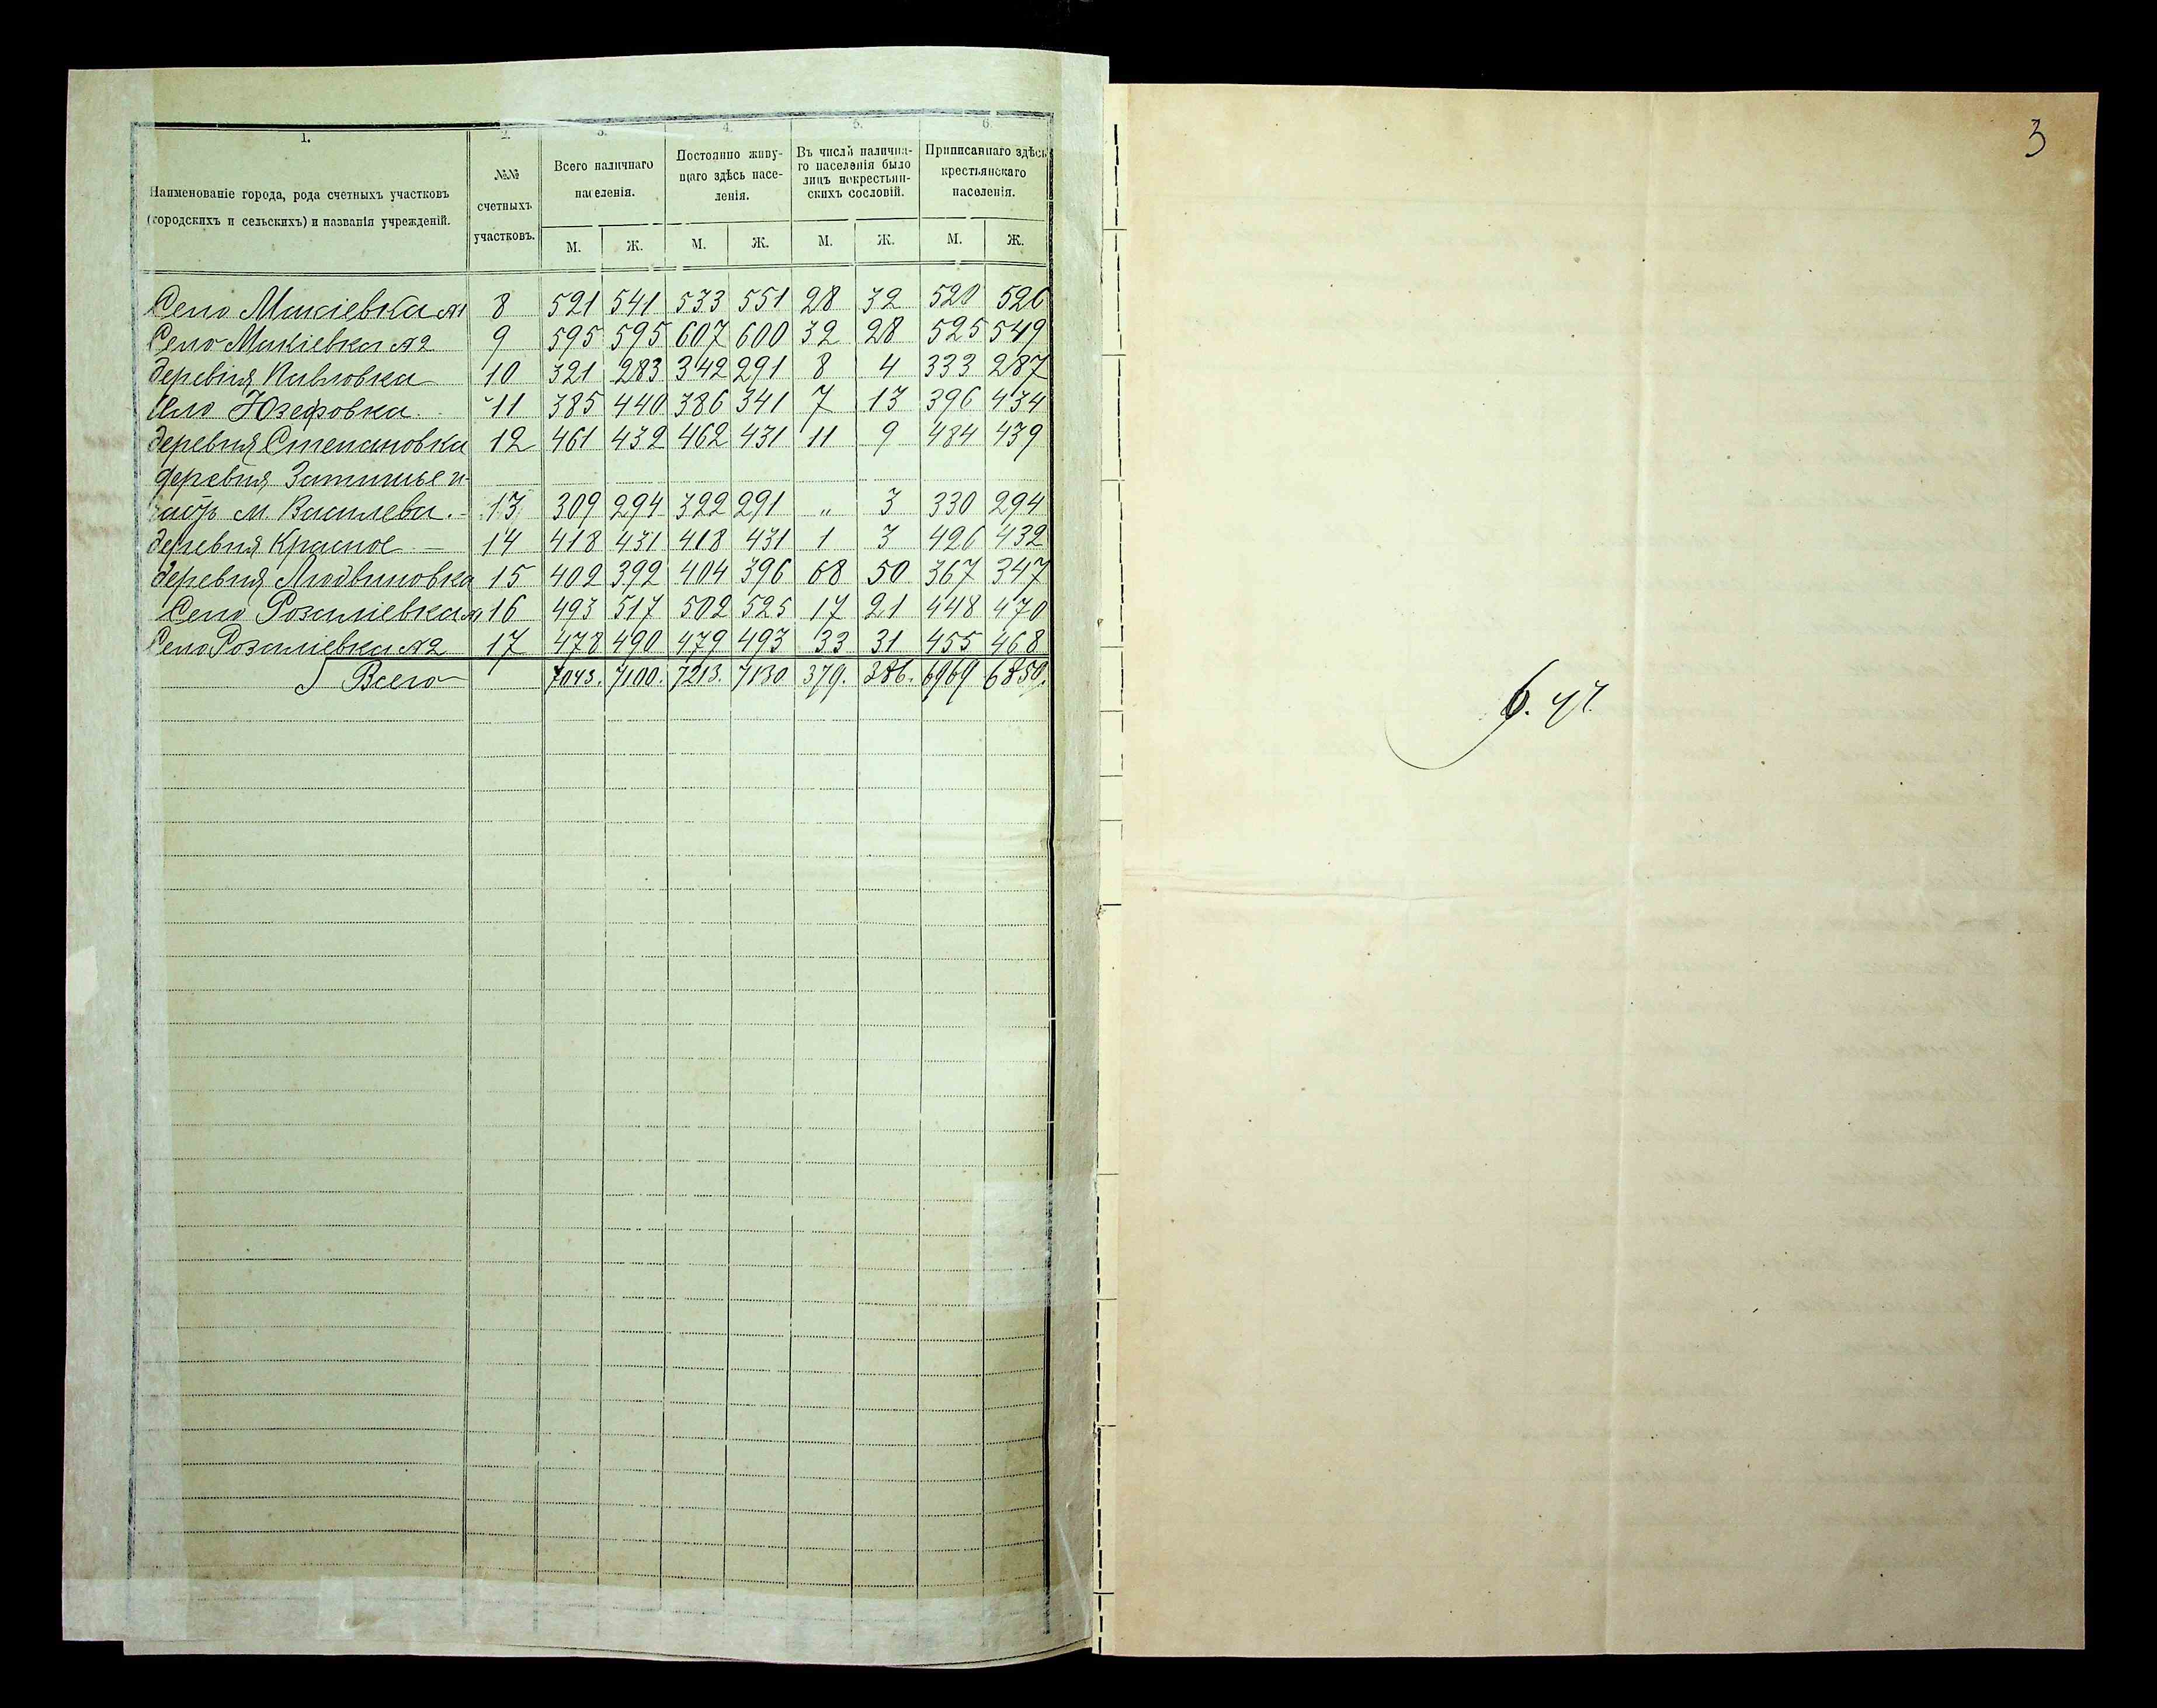 1. 2. 3. 4. 5. 6.
Наименованіе города, рода счетныхъ участковъ
(городскихъ и сельскихъ) и названія учрежденій.
№№
счетныхъ
участковъ.
Всего наличнаго
населенія.
Постоянно живу-
щаго здѣсь насе-
ленія.
Въ числѣ налична-
го населенія было
лицъ некрестьян-
скихъ сословій.
Приписаннаго здѣсь
крестьянскаго
населенія.
М. Ж. М. Ж. М. Ж. М. Ж.
Село Макіевка №1 8 521 541 533 551 28 32 520 526
Село Макіевка №2 9 595 595 607 600 32 28 525 549
деревня Павловка 10 321 283 342 291 8 4 333 287
Село Юзефовка 11 385 440 386 341 7 13 396 434
деревня Степановка 12 461 432 462 431 11 9 484 439
деревня Затишье и
м. Василева. 13 309 294 322 291 „ 3 330 294
деревня Красное 14 418 431 418 431 1 3 426 432
деревня Людвиновка 15 402 392 404 396 68 50 367 347
Село Розаліевка №1 16 493 517 502 525 17 21 448 470
Село Розаліевка №2 17 478 490 479 493 33 31 455 468
Всего 7043. 7100. 7213. 7130 379. 386. 6969 6850.
3